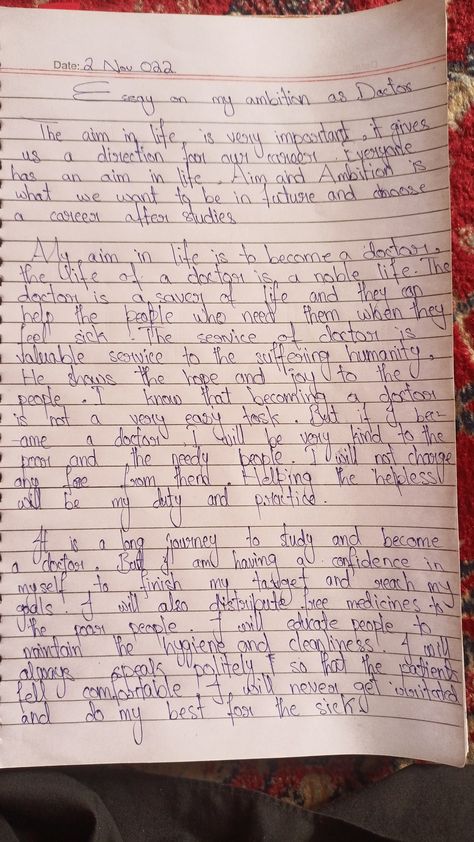 Date: 2 Nov 022
Essay on my ambition as Doctor
The aim in life is very important. it gives
us a direction for our career. Everyone
has an aim in life. Aim and Ambition is
what we want to be in future and choose
a career after studies
My aim in life is to become a doctor.
the life of a doctor is a noble life. The
doctor is a saver of life and they can
help the people who need them when they
feel sick. The service of doctor is
valuable service to the suffering humanity.
He shows the hope and joy to the
people. I know that becoming a doctor
is not a very easy task. But if I bec-
ame a doctor, I will be very kind to the
poor and the needy people. I will not charge
any fee from them. Helping the helpless
will be my duty and practice.
It is a long journey to study and become
a doctor. But I am having a confidence in
myself to finish my target and reach my
goals. I will also distribute free medicines to
the poor people. I will educate people to
maintain the hygiene and cleanliness. I will
always speak politely so that the patients
fell comfortable I will never get irritated
and do my best for the sick.